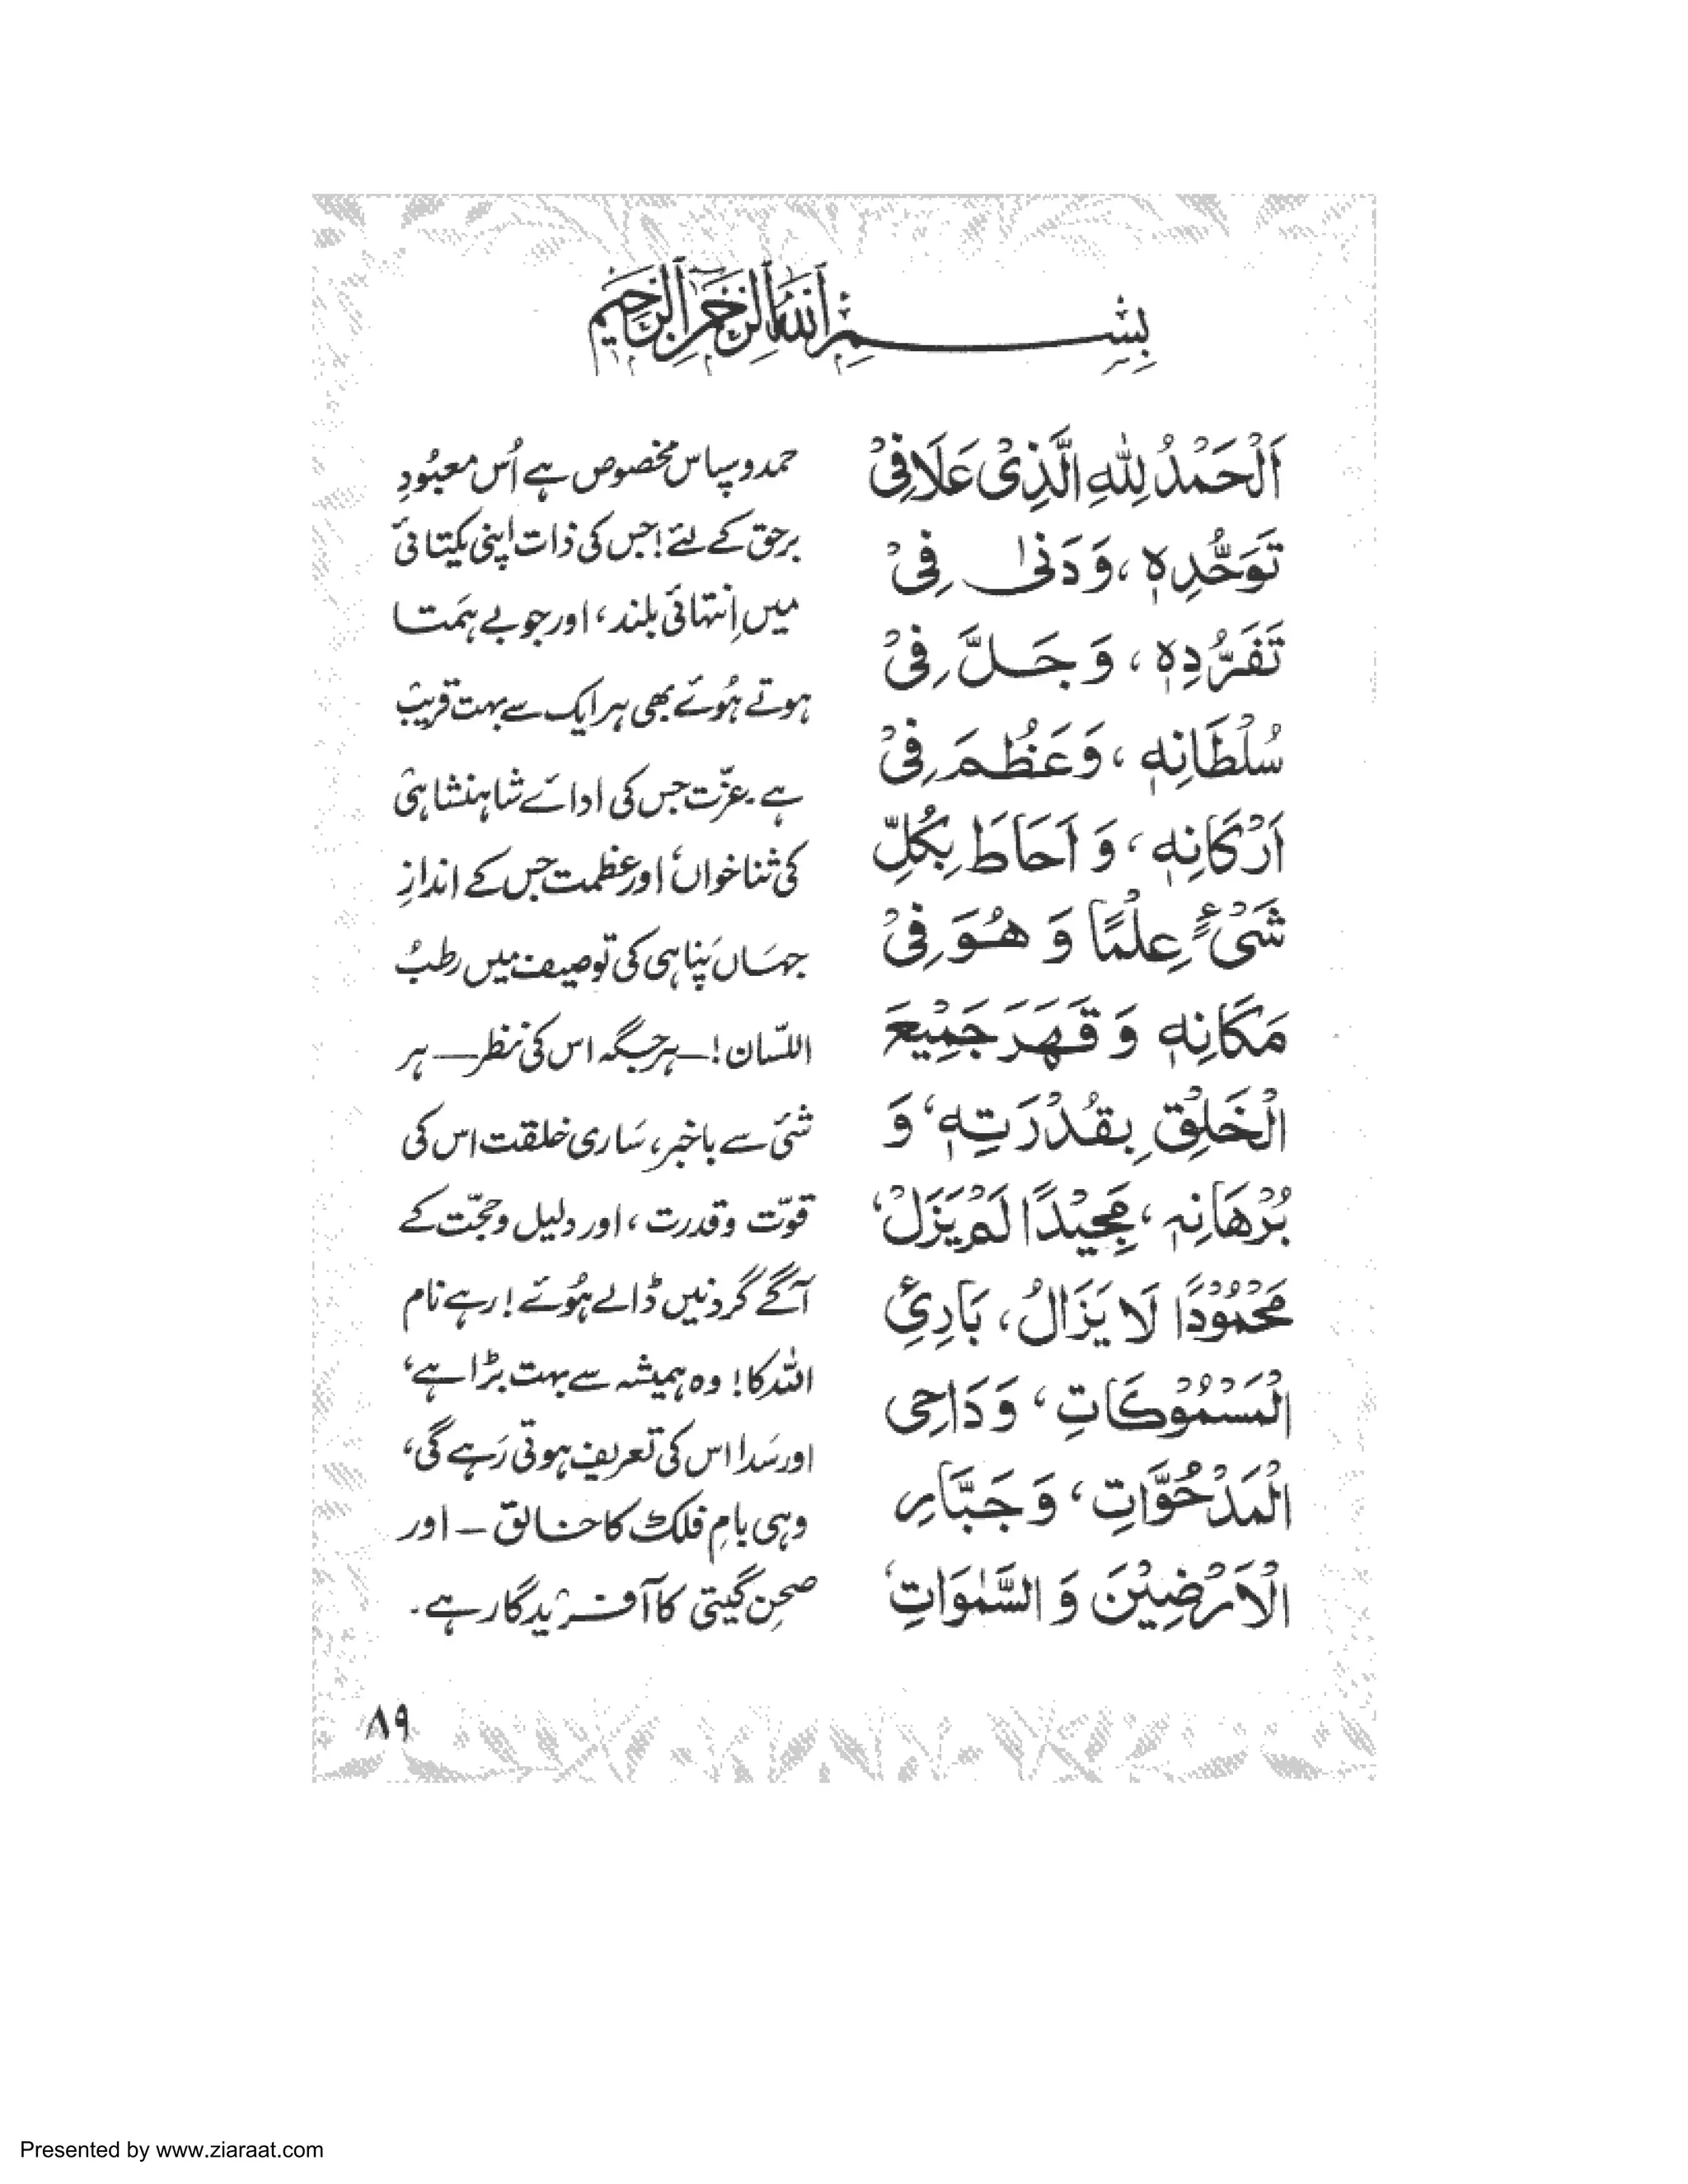 بِسْمِ اللهِ الرَّحْمٰنِ الرَّحِيْمِ
اَلْحَمْدُ لِلّٰهِ الَّذِیْ عَلَا فِیْ
تَوَحُّدِهٖ، وَ دَنٰی فِیْ
تَفَرُّدِهٖ، وَ جَلَّ فِیْ
سُلْطَانِهٖ، وَ عَظُمَ فِیْ
اَرْکَانِهٖ، وَ اَحَاطَ بِکُلِّ
شَیْءٍ عِلْمًا وَ هُوَ فِیْ
مَکَانِهٖ وَ قَهَرَ جَمِیْعَ
الْخَلْقِ بِقُدْرَتِهٖ، وَ
بُرْهَانِهٖ، مَجِیْدًا لَمْ یَزَلْ،
مَحْمُوْدًا لَا یَزَالُ، بَارِئِ
الْمَسْمُوْکَاتِ، وَ دَاحِی
الْمَدْحُوَّاتِ، وَ جَبَّارِ
الْاَرْضِیْنَ وَ السَّمٰوَاتِ،
حمد و سپاس مخصوص ہے اُس معبُودِ
برحق کے لئے! جس کی ذات اپنی یکتائی
میں اِنتہائی بلند، اور جو بے ہَمتا
ہوتے ہُوئے بھی ہر ایک سے بہت قریب
ہے۔ عزّت جس کی ادائے شاہنشاہی
کی ثنا خواں، اور عظمت جس کے اندازِ
جہَاں پَناہی کی توصیف میں رطبُ
اللسّان! — ہر جگہ اس کی نظر — ہر
شئی سے باخبر، سَاری خلقت اس کی
قوّت و قدرت، اور دلیل و حجّت کے
آگے گردنیں ڈالے ہُوئے! رہے نام
اللہ کا! وہ ہمیشہ سے بہت بڑا ہے،
اور سَدا اس کی تعریف ہوتی رَہے گی،
وہی بامِ فلک کا خالق – اور
صحنِ گیتی کا آفریدگار ہے۔
۸۹
Presented by www.ziaraat.com